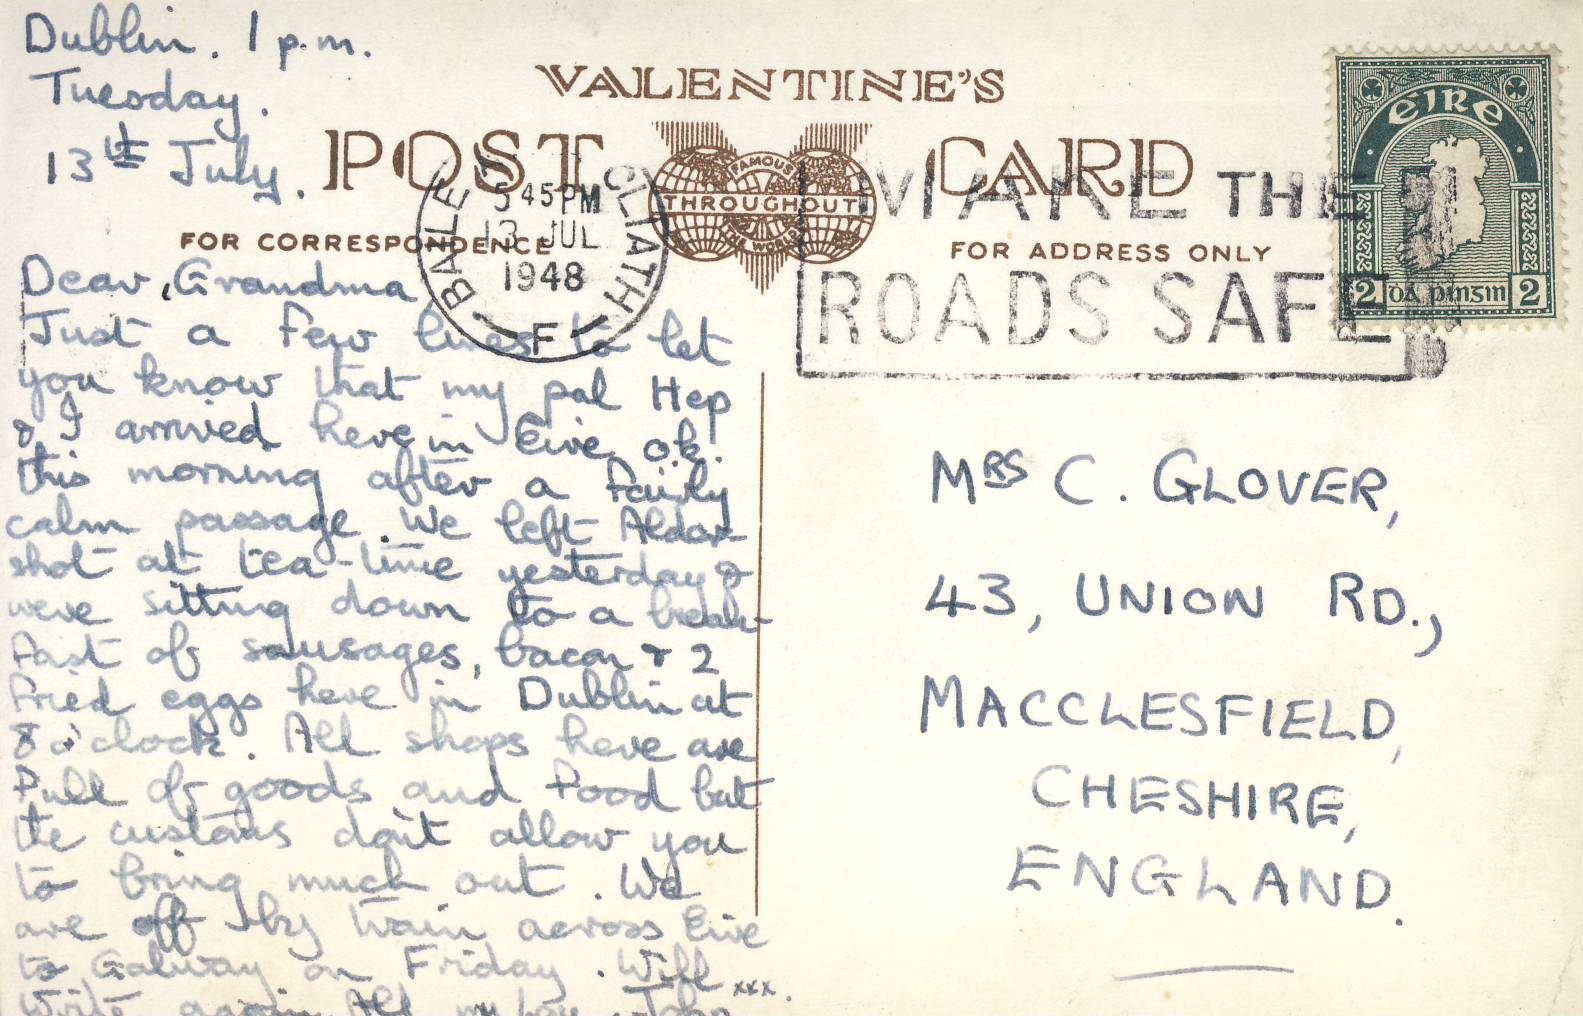 Dublin. 1 p.m.
Tuesday.
13th July.
VALENTINE'S
POST CARD
FAMOUS
THROUGHOUT
THE WORLD
FOR CORRESPONDENCE
FOR ADDRESS ONLY
BAILE CLIATH
5 45 PM
13 JUL
1948
F
MAKE THE
ROADS SAFE
EIRE
2 dá pinsin 2
Dear Grandma,
Just a few lines to let
you know that my pal Hep
& I arrived here in Eire ok.
this morning after a fairly
calm passage. We left Alder-
shot at tea-time yesterday &
were sitting down to a break-
fast of sausages, bacon & 2
fried eggs here in Dublin at
8 o'clock. All shops here are
full of goods and food but
the customs don't allow you
to bring much out. We
are off by train across Eire
to Galway on Friday. Will
write again. All my love, John
xxx.
MRS C. GLOVER,
43, UNION RD.,
MACCLESFIELD,
CHESHIRE,
ENGLAND.